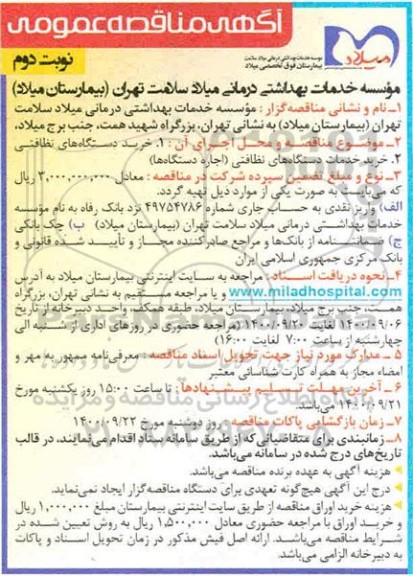 آگهی مناقصه عمومی
میلاد
موسسه خدمات بهداشتی درمانی میلاد سلامت
بیمارستان فوق تخصصی میلاد
نوبت دوم
مؤسسه خدمات بهداشتی درمانی میلاد سلامت تهران (بیمارستان میلاد)
۱ـ نام و نشانی مناقصه‌گزار : مؤسسه خدمات بهداشتی درمانی میلاد سلامت
تهران (بیمارستان میلاد) به نشانی تهران، بزرگراه شهید همت، جنب برج میلاد،
۲ـ موضوع مناقصه و محل اجرای آن : ۱. خرید دستگاه‌های نظافتی
۲. خرید خدمات دستگاه‌های نظافتی (اجاره دستگاه‌ها)
۳ـ نوع و مبلغ تضمین سپرده شرکت در مناقصه : معادل ۳,۰۰۰,۰۰۰,۰۰۰ ریال
که می‌بایست به صورت یکی از موارد ذیل تهیه گردد.
الف) واریز نقدی به حساب جاری شماره ۴۹۷۵۴۷۸۶ نزد بانک رفاه به نام مؤسسه
خدمات بهداشتی درمانی میلاد سلامت تهران (بیمارستان میلاد) ب) چک بانکی
ج) ضمانتنامه از بانک‌ها و مراجع صادرکننده مجاز و تأیید شده قانونی و
بانک مرکزی جمهوری اسلامی ایران
۴ـ نحوه دریافت اسناد : مراجعه به سایت اینترنتی بیمارستان میلاد به آدرس
www.miladhospital.com و یا مراجعه مستقیم به نشانی تهران، بزرگراه
همت، جنب برج میلاد بیمارستان میلاد، طبقه همکف، واحد دبیرخانه از تاریخ
۱۴۰۰/۰۹/۰۶ لغایت ۱۴۰۰/۰۹/۲۰ (مراجعه حضوری در روزهای اداری از شنبه الی
چهارشنبه از ساعت ۷:۰۰ لغایت ۱۶:۰۰)
۵ ـ مدارک مورد نیاز جهت تحویل اسناد مناقصه : معرفی‌نامه ممهور به مهر و
امضاء مجاز به همراه کارت شناسائی معتبر
۶ ـ آخرین مهلت تسلیم پیشنهادها : تا ساعت ۱۵:۰۰ روز یکشنبه مورخ
۱۴۰۰/۰۹/۲۱ می‌باشد.
۷ـ زمان بازگشایی پاکات مناقصه : روز دوشنبه مورخ ۱۴۰۰/۰۹/۲۲
۸ ـ زمانبندی برای متقاضیانی که از طریق سامانه ستاد اقدام می‌نمایند، در قالب
تاریخ‌های درج شده در سامانه می‌باشد.
هزینه آگهی به عهده برنده مناقصه می‌باشد.
درج این آگهی هیچ‌گونه تعهدی برای دستگاه مناقصه‌گزار ایجاد نمی‌نماید.
هزینه خرید اوراق مناقصه از طریق سایت اینترنتی بیمارستان مبلغ ۱,۰۰۰,۰۰۰ ریال
و خرید اوراق با مراجعه حضوری معادل ۱,۵۰۰,۰۰۰ ریال به روش تعیین شده در
شرایط مناقصه می‌باشد. ارائه اصل فیش مذکور در زمان تحویل اسناد و پاکات
به دبیرخانه الزامی می‌باشد.